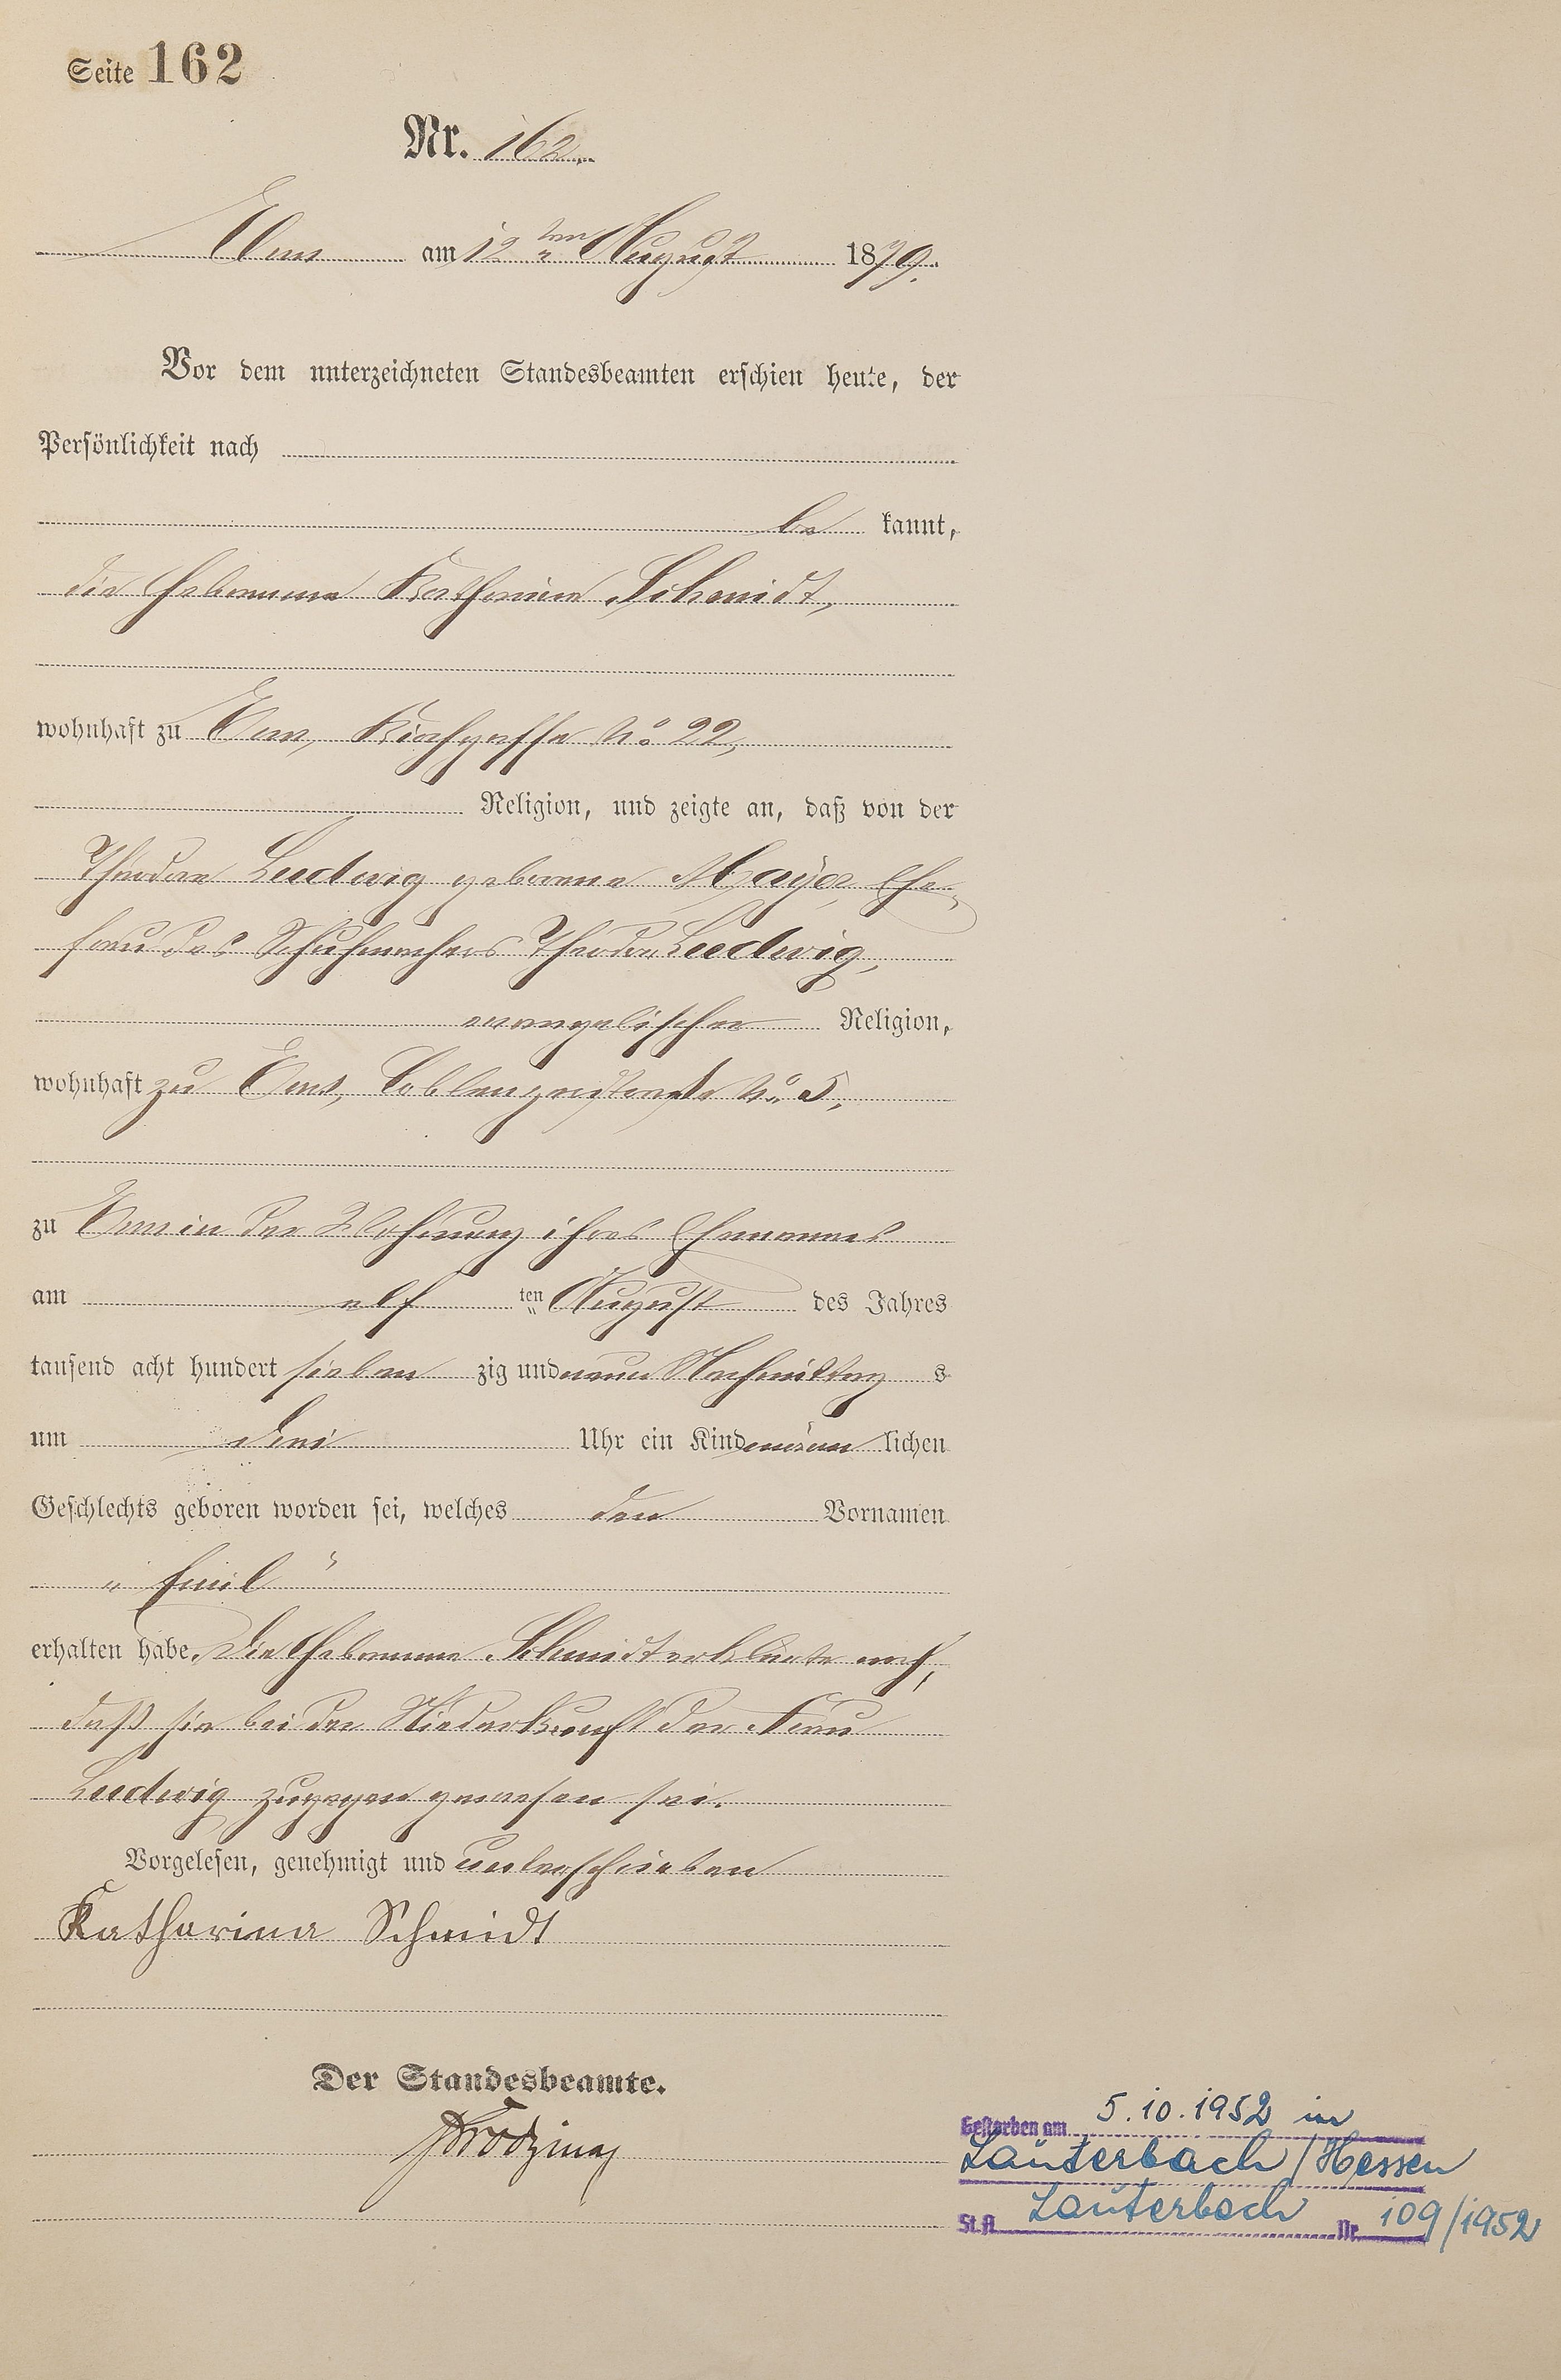 Seite 162
Nr. 162.
Ems am 12ten August 1879.
Vor dem unterzeichneten Standesbeamten erschien heute, der
Persönlichkeit nach
be kannt,
die Hebamme Katharina Schmidt,
wohnhaft zu Ems, Kirchgasse No. 22,
Religion, und zeigte an, daß von der
Theodor Ludwig geborene Mayer, Ehe-
frau des Schuhmachers Theodor Ludwig,
evangelischer Religion,
wohnhaft zu Ems, Coblenzerstraße No. 5,
zu Ems in der Wohnung ihres Ehemannes
am elf ten August des Jahres
tausend acht hundert sieben zig und neun Nachmittag s
um drei Uhr ein Kind männ lichen
Geschlechts geboren worden sei, welches den Vornamen
„Emil“
erhalten habe. Die Hebamme Schmidt erklärte noch,
daß sie bei der Niederkunft der Frau
Ludwig zugegen gewesen sei.
Vorgelesen, genehmigt und unterschrieben
Katharina Schmidt
Der Standesbeamte.
Gestorben am 5.10.1952 in
Lauterbach/Hessen
St.A. Lauterbach Nr. 109/1952